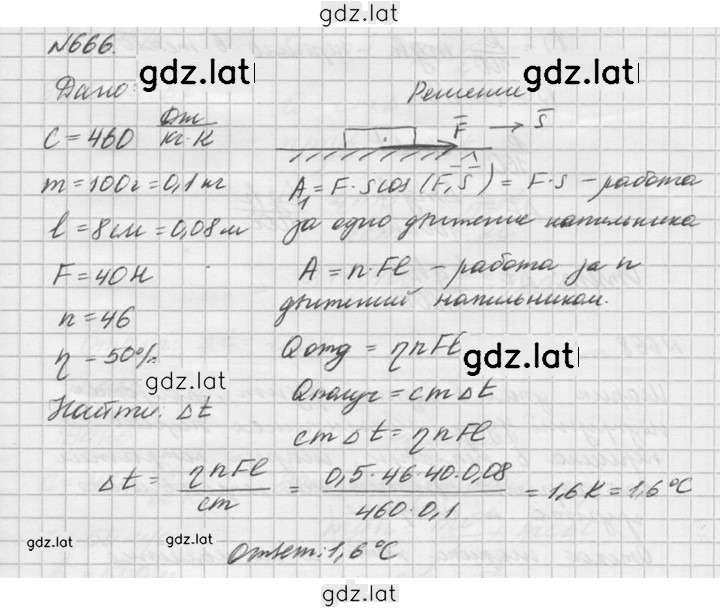 gdz.lat
№666.
gdz.lat
Дано:
Решение
C = 460 Дж/кг·К
F → S
m = 100г = 0,1 кг
A₁ = F·s cos(F,S) = F·s – работа
за одно движение напильника
l = 8 см = 0,08 м
F = 40 Н
A = n·Fl – работа за n
движений напильником.
n = 46
η – 50%
gdz.lat
Qотд = ηnFl
gdz.lat
Qполуч = cmΔt
Найти: Δt
cmΔt = ηnFl
Δt = ηnFl/cm = 0,5·46·40·0,08/460·0,1 = 1,6 К = 1,6°C
gdz.lat
gdz.lat
gdz.lat
Ответ: 1,6°C
gdz.lat